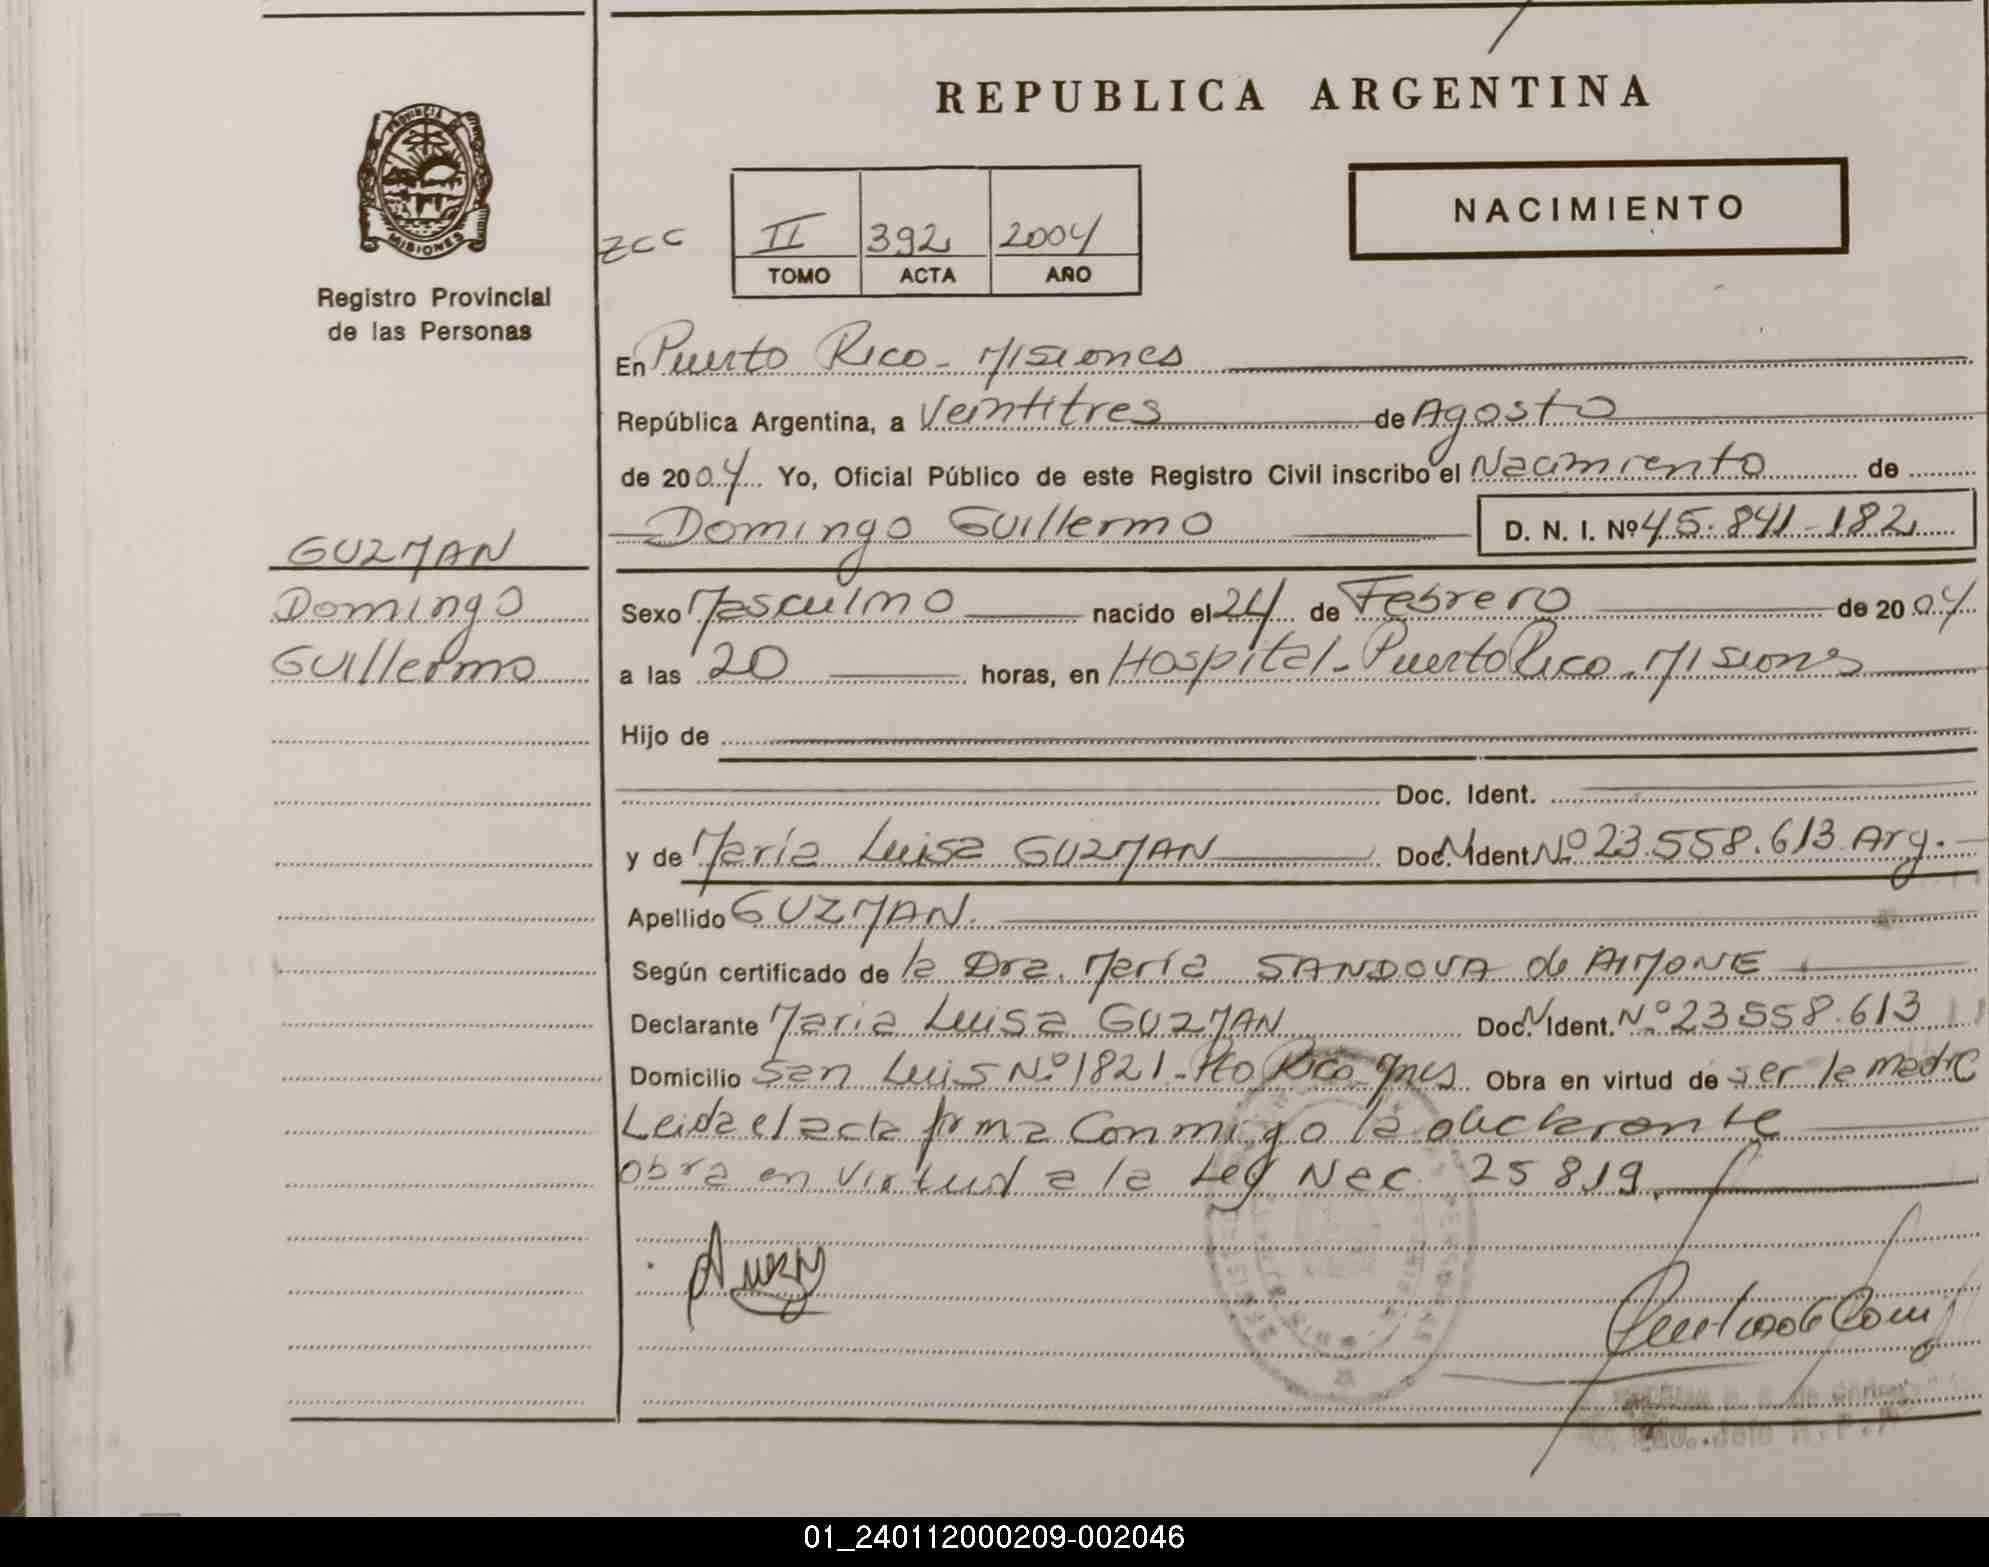 REPUBLICA ARGENTINA
PROVINCIA DE
MISIONES
Registro Provincial
de las Personas
NACIMIENTO
II 392 2004
TOMO ACTA AÑO
En Puerto Rico - Misiones
República Argentina, a Veintitres de Agosto
de 2004 Yo, Oficial Público de este Registro Civil inscribo el Nacimiento de
Domingo Guillermo D. N. I. Nº 45.841.182
GUZMAN
Domingo
Guillermo
Sexo Masculino nacido el 24 de Febrero de 2004
a las 20 horas, en Hospital - Puerto Rico - Misiones
Hijo de
Doc. Ident.
y de María Luisa GUZMAN Doc. N. Ident. Nº 23.558.613 Arg.
Apellido GUZMAN
Según certificado de la Dra. María SANDOVA de AIMONE
Declarante Maria Luisa GUZMAN Doc. N. Ident. Nº 23.558.613
Domicilio San Luis Nº 1821 - Pto Rico - Mnes Obra en virtud de ser la madre
Leida el acta firma conmigo la declarante
obra en virtud a la Ley Nac. 25819.
01_240112000209-002046